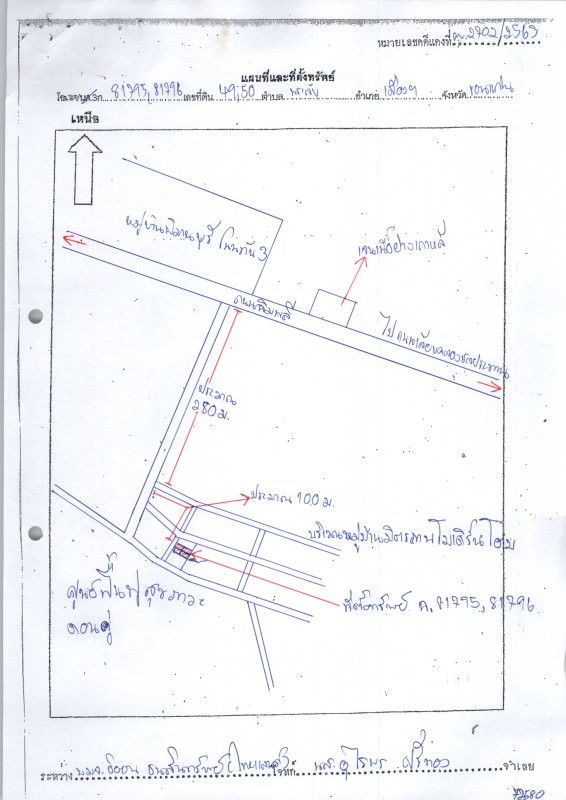 หมายเลขคดีแดงที่ ผบ.2702/2563
แผนที่และที่ตั้งทรัพย์
โฉนด/น.ส.3ก. 81795, 81796 เลขที่ดิน 49, 50 ตำบล พระลับ อำเภอ เมืองฯ จังหวัด ขอนแก่น
เหนือ
หมู่บ้านพิมานบุรี โนนทัน 3
เจนเนื้อย่างเกาหลี
ถนนฉิมพลี
ไปถนนเลียบคลองชลประทาน
ประมาณ
280 ม.
ประมาณ 100 ม.
บริเวณหมู่บ้านมิตรภาพ โมเดิร์นโฮม
ศูนย์ฟื้นฟูสุขภาวะ
ที่ตั้งทรัพย์ ฉ. 81795, 81796
ระหว่าง โจทก์ จำเลย
72580